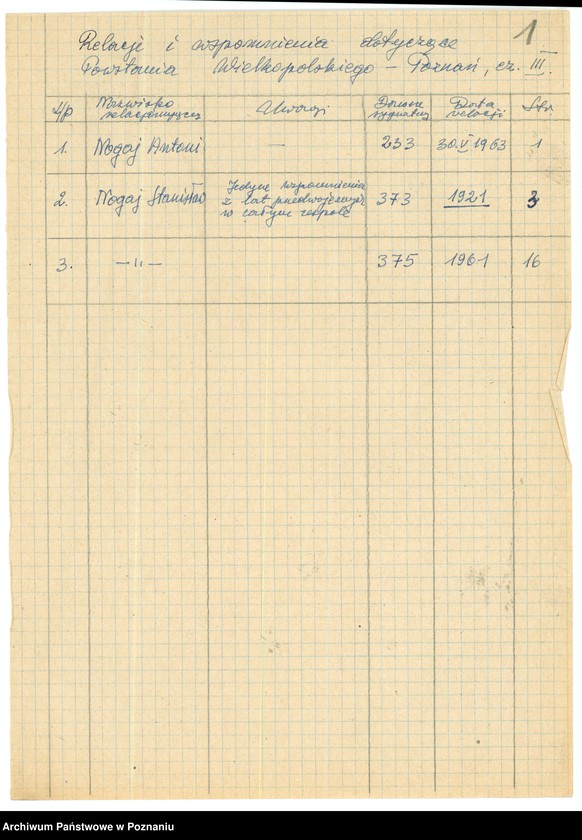 1
Relacje i wspomnienia dotyczące
Powstania Wielkopolskiego - Poznań, cz. III.
L/p Nazwisko relacjonującego Uwagi Dawne sygnatury Data relacji Str.
1. Nogaj Antoni — 233 30.V.1963 1
2. Nogaj Stanisław Jedyne wspomnienia z lat przedwojennych w całym zespole 373 1921 3
3. —"— 375 1961 16
Archiwum Państwowe w Poznaniu